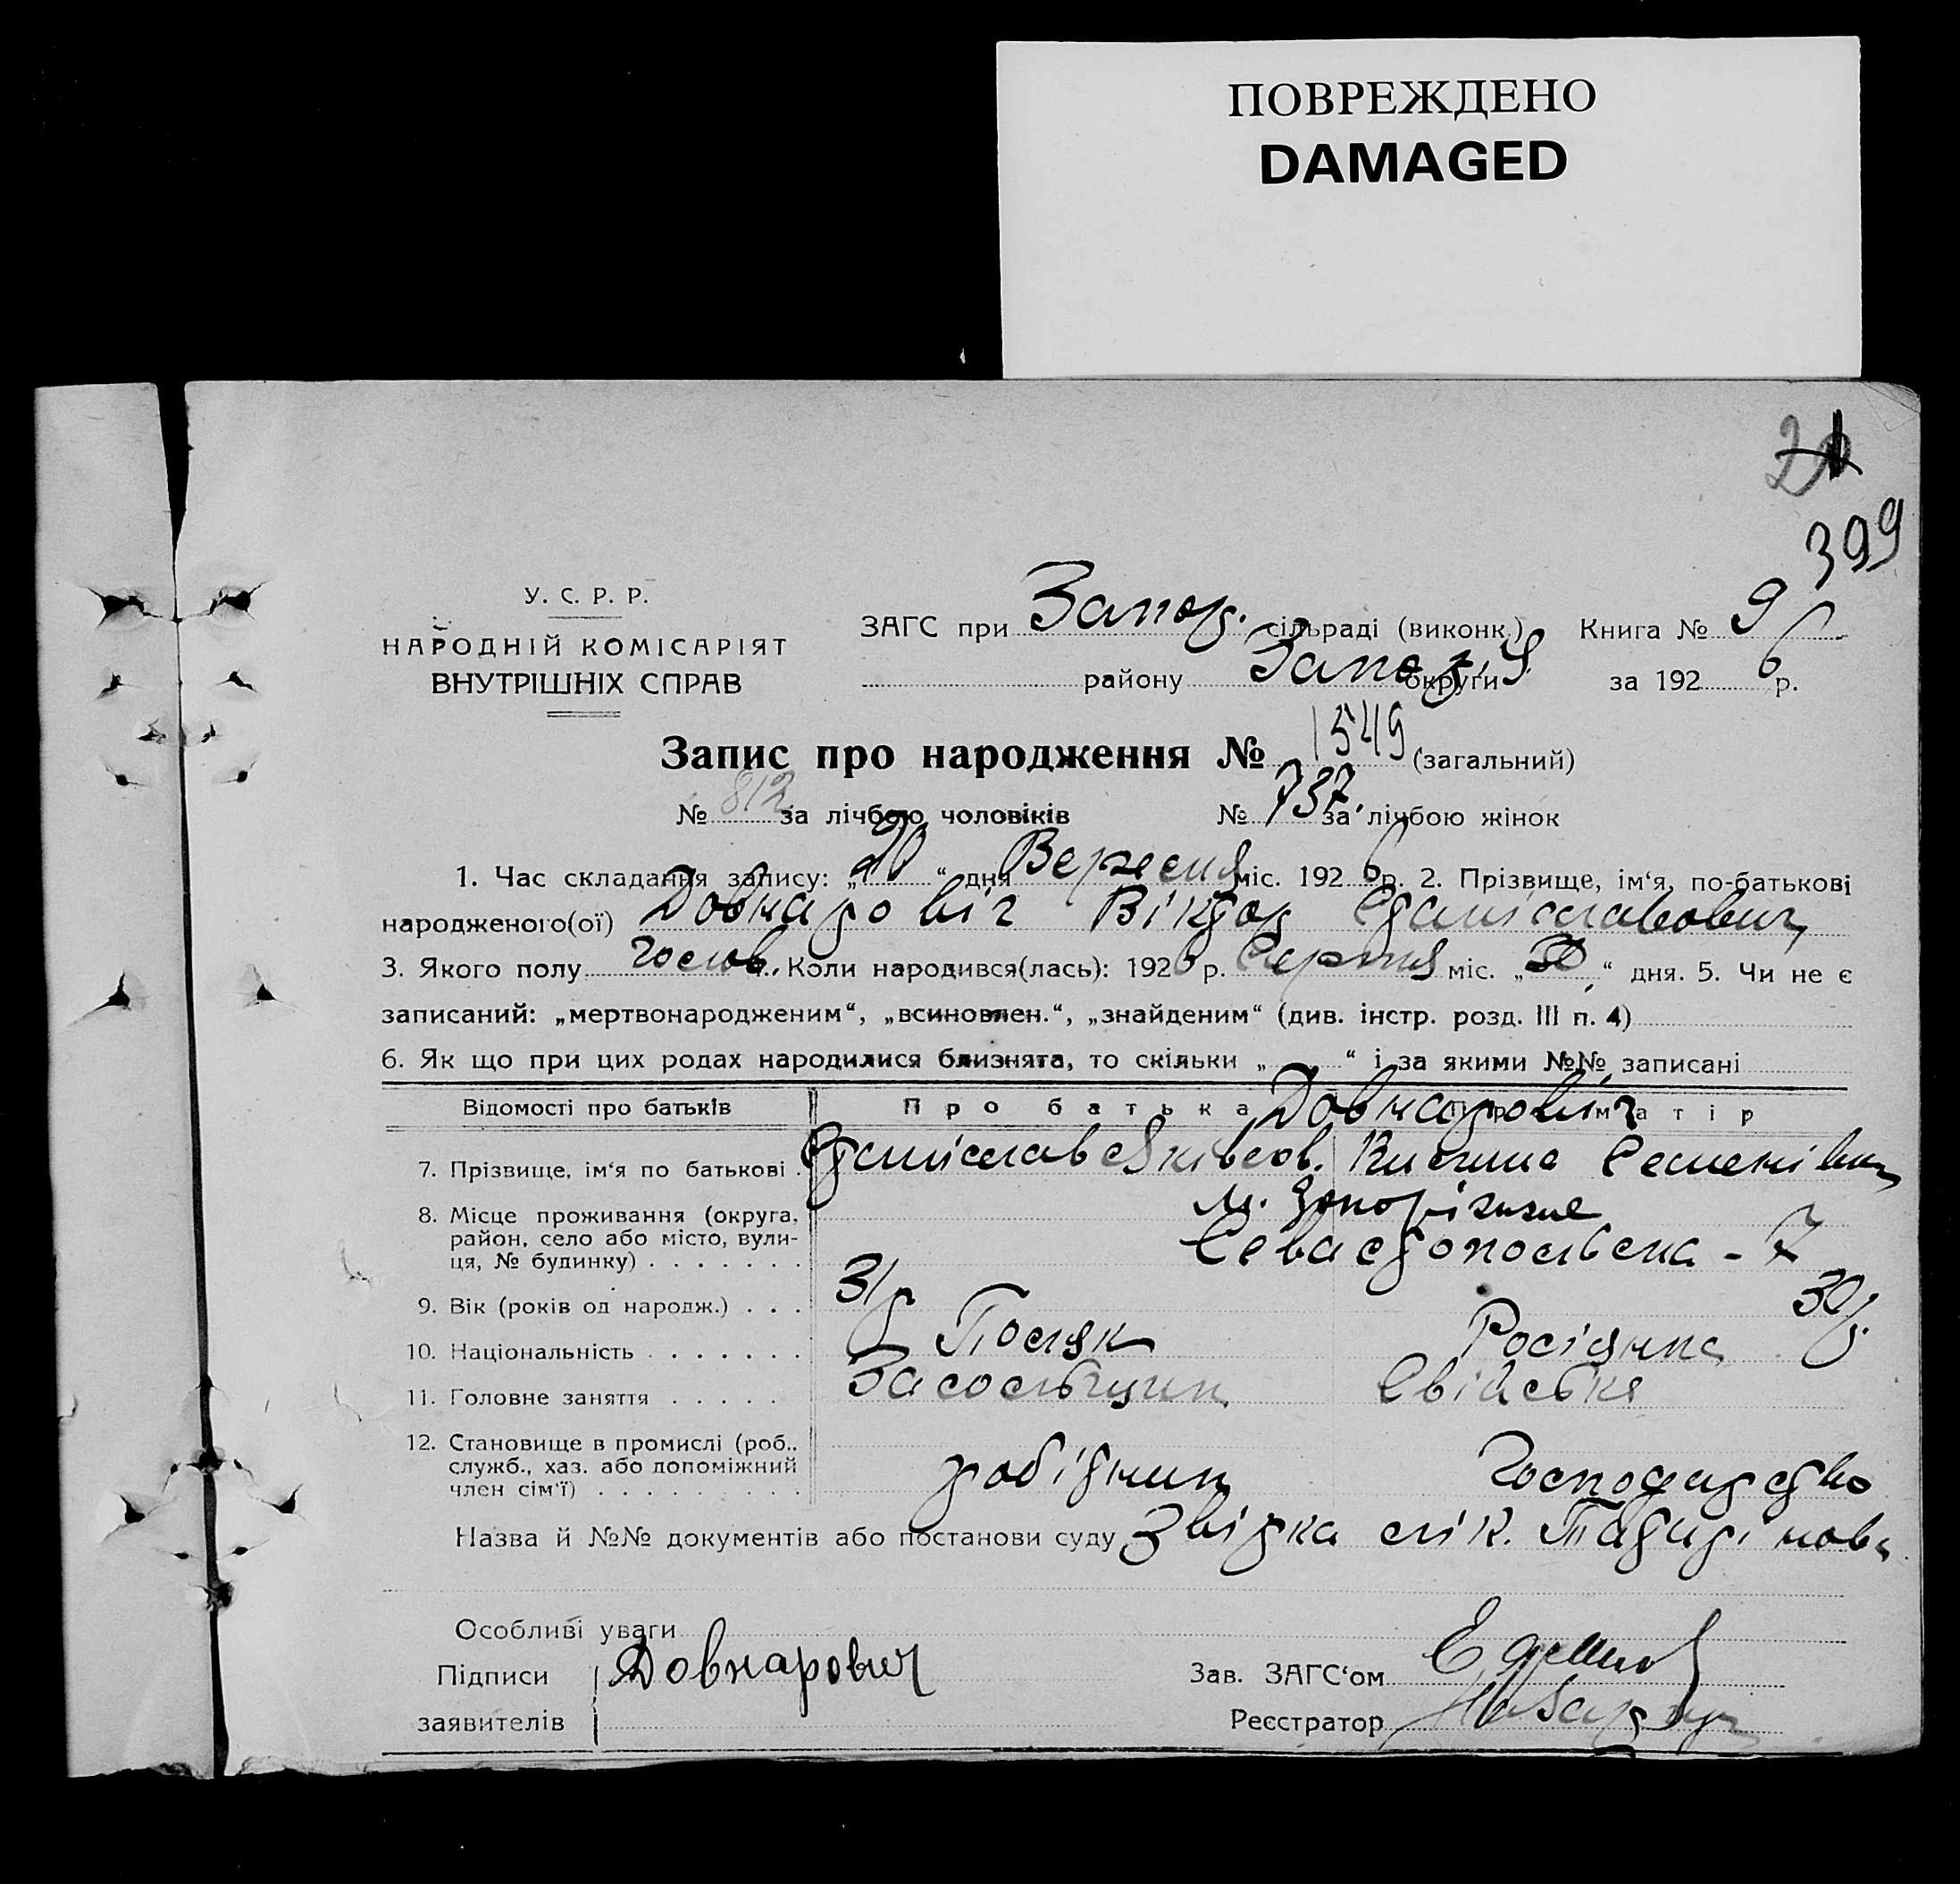 ПОВРЕЖДЕНО
DAMAGED
399
У. С. Р. Р.
НАРОДНІЙ КОМІСАРІЯТ
ВНУТРІШНІХ СПРАВ
ЗАГС при Запор. сільраді (виконк.) Книга № 9
району Запор. округи за 1926 р.
Запис про народження № 1549 (загальний)
№ 812 за лічбою чоловіків № 737 за лічбою жінок
1. Час складання запису: „20“ дня Вересня міс. 1926 р. 2. Прізвище, ім'я, по-батькові
народженого(ої) Довнаровіч Віктор Станіславович
3. Якого полу чолов. Коли народився(лась): 1926 р. Серпня міс. „30“ дня. 5. Чи не є
записаний: „мертвонародженим“, „всиновлен.“, „знайденим“ (див. інстр. розд. III п. 4)
6. Як що при цих родах народилися близнята, то скільки „ “ і за якими №№ записані
Відомості про батьків Про батька Про матір
Довнаровіч
7. Прізвище, ім'я по батькові Станіслав Яківсов. Семенівна
8. Місце проживання (округа, район, село або місто, вулиця, № будинку) м. Запоріжже
Севастопольська - 7
9. Вік (років од народж.) 31 р 30 р.
10. Національність Поляк Росіянка
11. Головне заняття Свійське
12. Становище в промислі (роб., служб., хаз. або допоміжний член сім'ї) робітник Господарство
Назва й №№ документів або постанови суду Звідка лік.
Особливі уваги
Підписи Довнарович Зав. ЗАГС'ом
заявителів Реєстратор